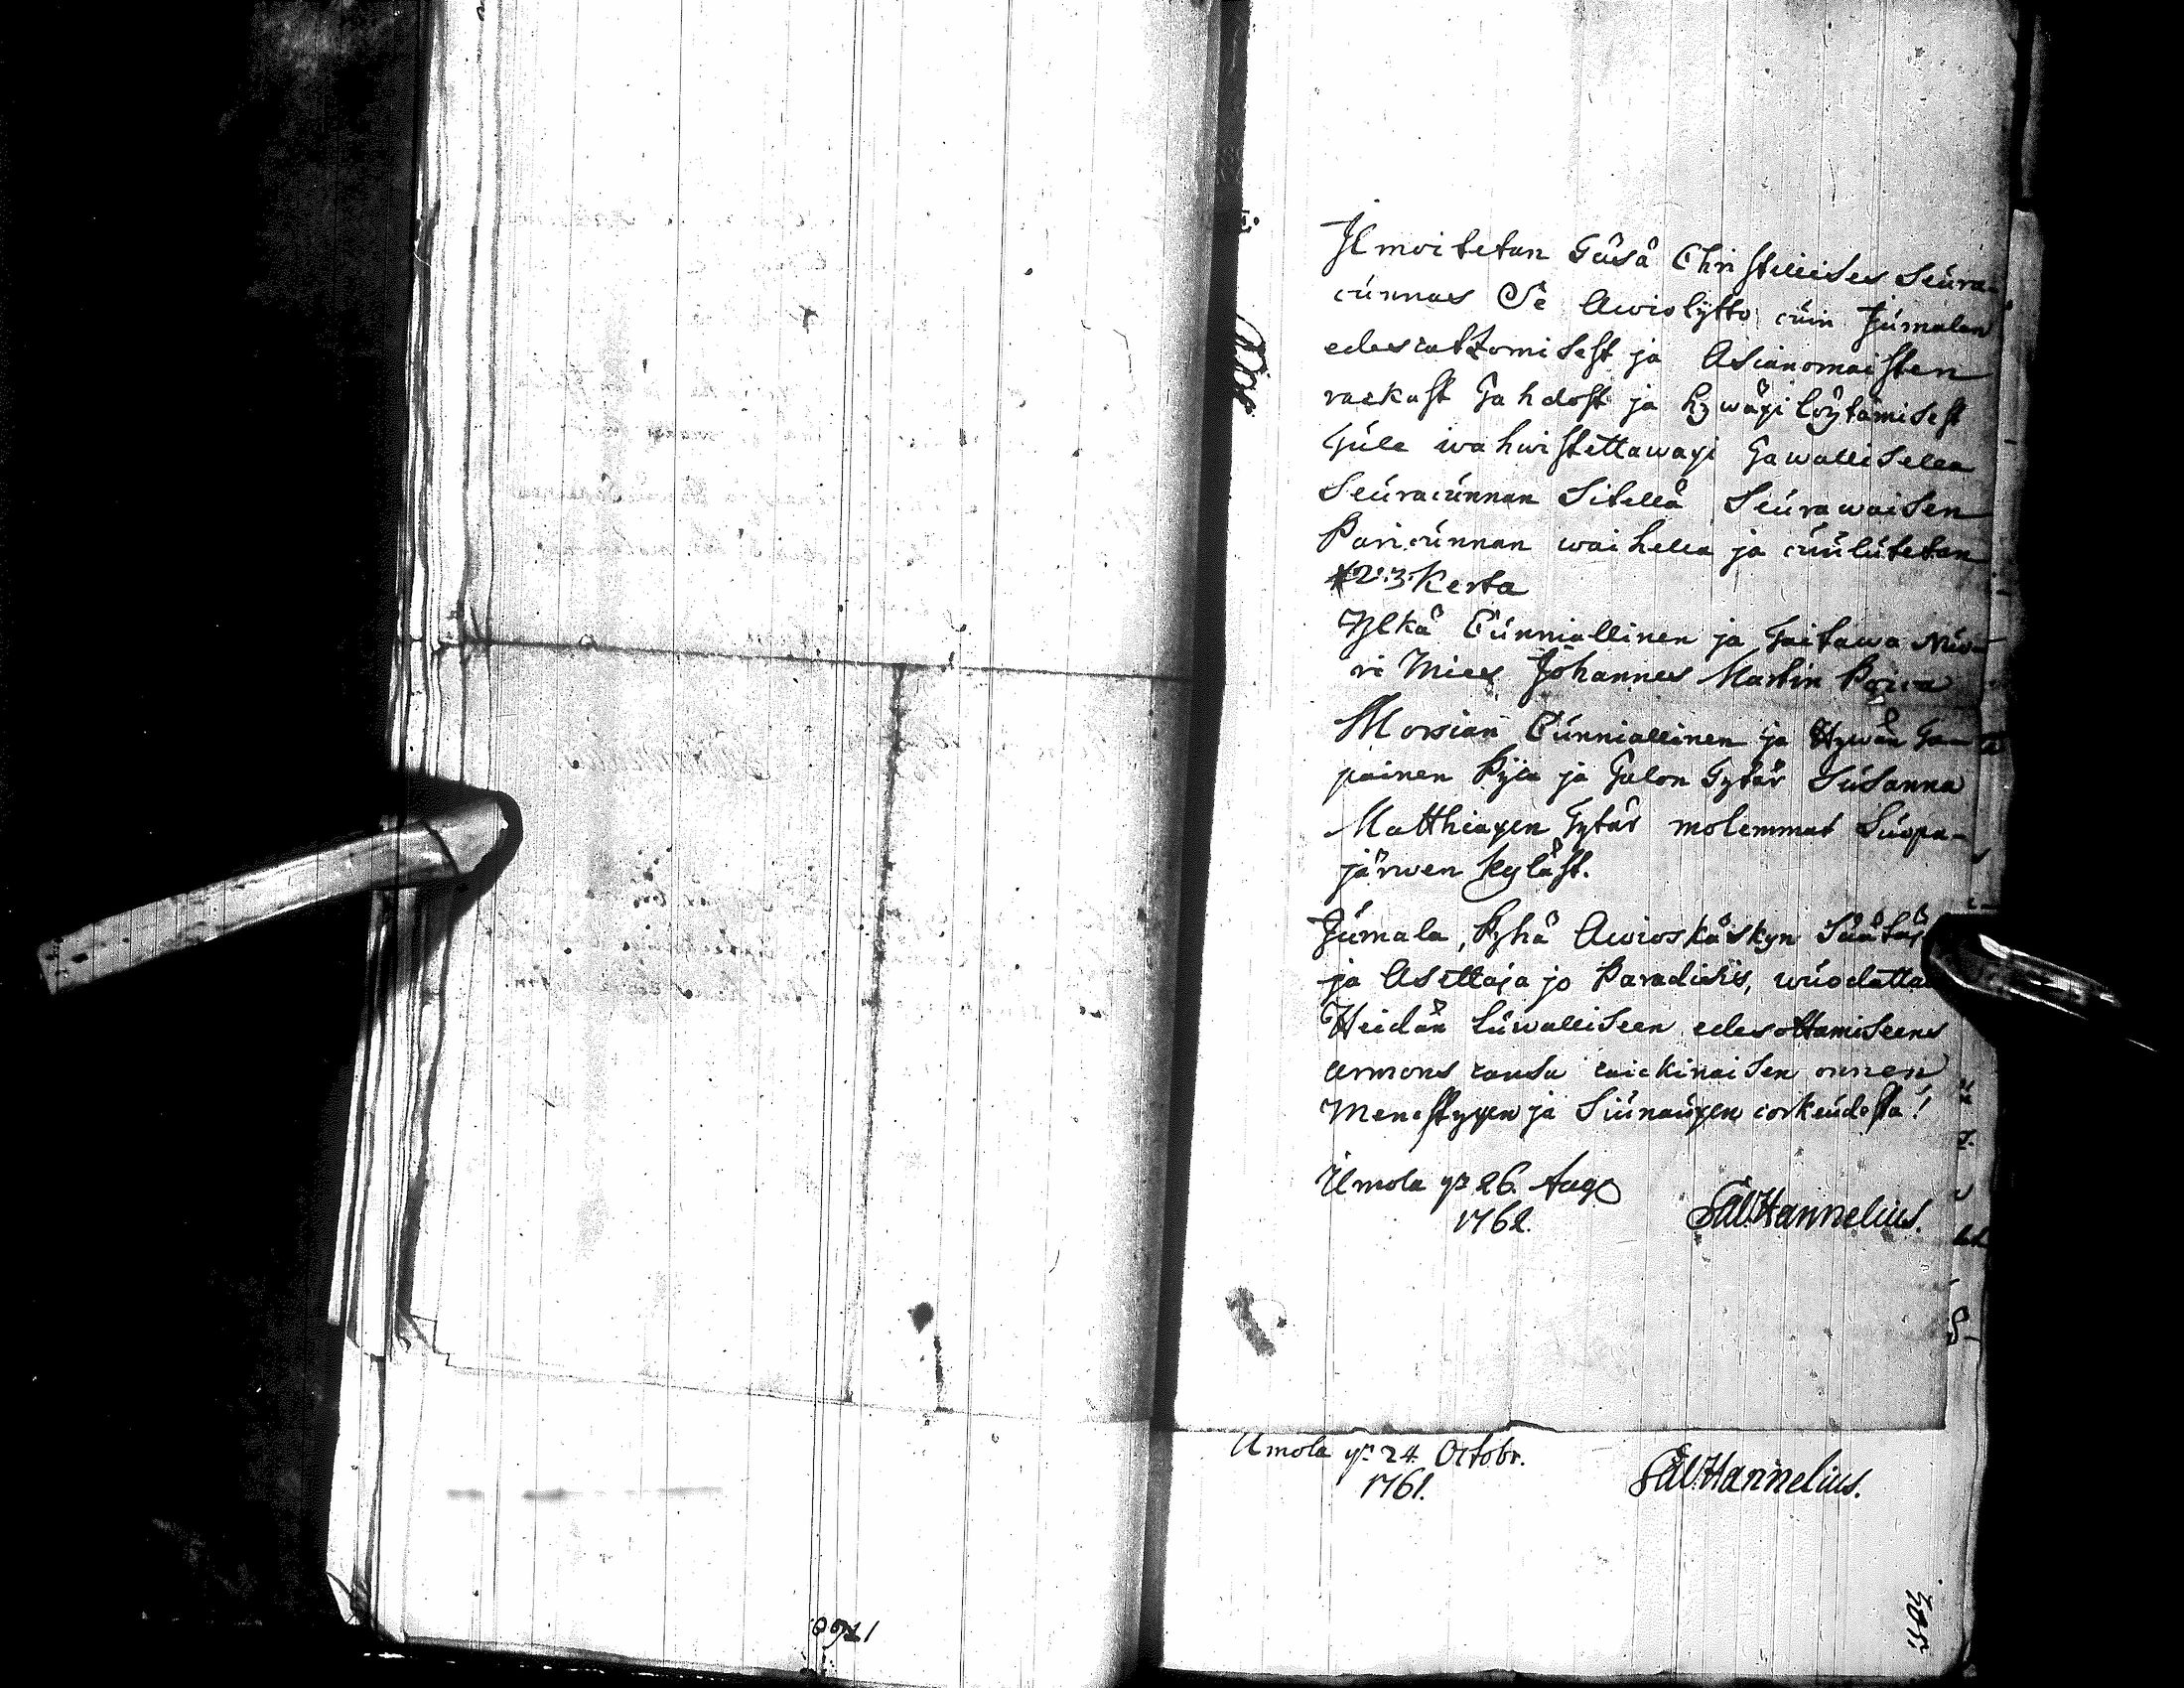 Ilmoitetan Täsä Christillises Seura-
cúnnas Se Awiolijtto cúin Júmalan
edescatzomisest ja Asianomaisten
rackast Tahdost ja hywäxi löytämisest
Túle wahwistettawaxi Tawallisella
Seúracúnnan Sitellä Seúrawaisen
Paricúnnan waihella ja cúúlútetan
2. 3. Kerta
Ylkä Cúnniallinen ja Taitawa Núo-
ri Mies Johannes Martin Poica
Morsian Cúnniallinen ja Hywän Ta-
painen Pijca ja Talon Tytär Súsanna
Matthiaxen Tytär molemmat Súopa-
järwen Kyläst.
Júmala, Pyhä Awioskäskyn Säätäj
ja Asettaja jo Paradisis, wúodatta
Heidän Lúwalliseen edesottamiseens
armons cansa caickinaisen onnen
Menestyxen ja Siúnaúxen corkeúdesta!
Úmola yº 26. Aug
1762.
SAl:Hannelius.
Úmola yº 24. Octobr.
1761.
SAl:Hannelius.
1760